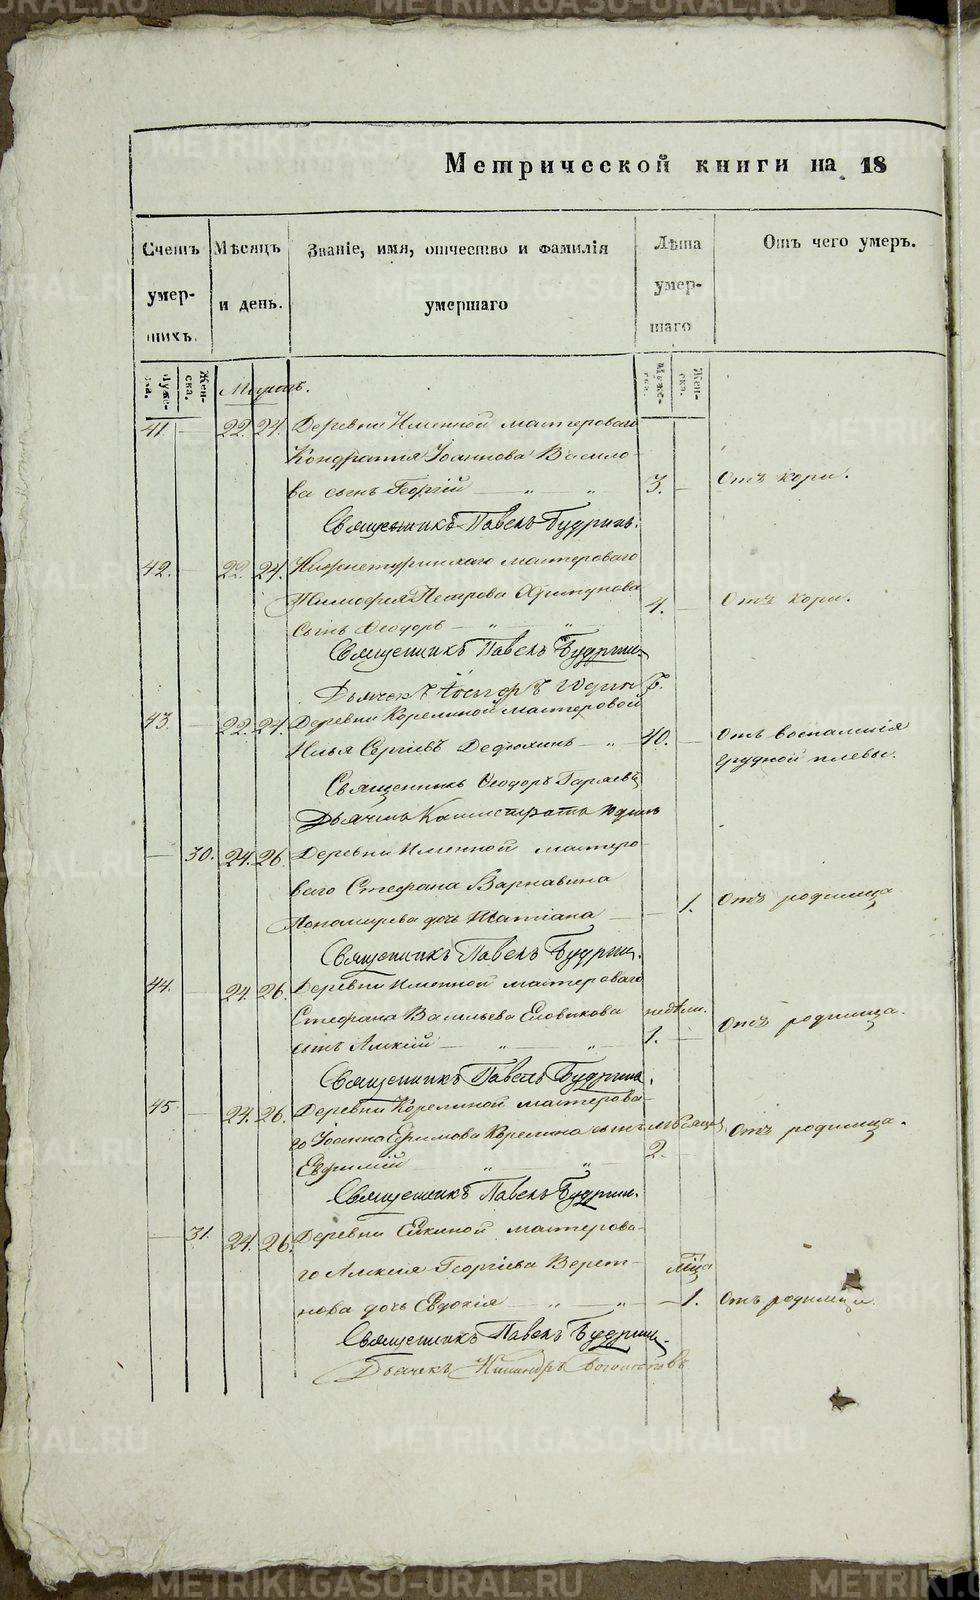 Метрической книги на 18
Счетъ умершихъ.
Мѣсяцъ и день.
Званіе, имя, отчество и фамилія умершаго
Лѣта умершаго
Отъ чего умеръ.
Муже-ска.
Жен-ска.
Муже-ска.
Жен-ска.
Мартъ.
41. — 22. 24. Деревни Именной мастероваго
Кондратія Іоаннова Васило-
ва сынъ Георгій — „ — „ 3. — Отъ кори.
Священникъ Павелъ Будринъ.
42. — 22. 24. Нижнетуринскаго мастероваго
Тимофея Петрова
сынъ Ѳеодоръ — „ — „ 4. — Отъ кори.
Священникъ Павелъ Будрин.
Дьячекъ
43. — 22. 24. Деревни Корелиной мастеровой
Илья Сергіевъ Дедюхинъ — „ — 40. — Отъ воспаленія
грудной плевы.
Священникъ Ѳеодоръ
Дьячекъ Каллистратъ Юдинъ
— 30. 24. 26. Деревни Именной мастеро-
ваго Стефана Варнавина
Пономарева дочь — — 1. Отъ родимца
Священникъ Павелъ Будрин.
44. — 24. 26. Деревни Именной мастероваго
Стефана Васильева Еловикова недѣли.
сынъ Алексій — „ — „ 1. — Отъ родимца.
Священникъ Павелъ Будринъ.
45 — 24. 26. Деревни Корелиной мастерова-
го Іоанна Ефимова Корелина сынъ мѣсяц.
Евфимій „ „ 2. Отъ родимца.
Священникъ Павелъ Будрин.
— 31. 24. 26. Деревни Елкиной мастерова-
го Алексія Георгіева Верет- мѣца
нова дочь Евдокія — „ — „ — 1. Отъ родимца.
Священникъ Павелъ Будрин.
Дьячекъ Никаноръ
METRIKI.GASO-URAL.RU